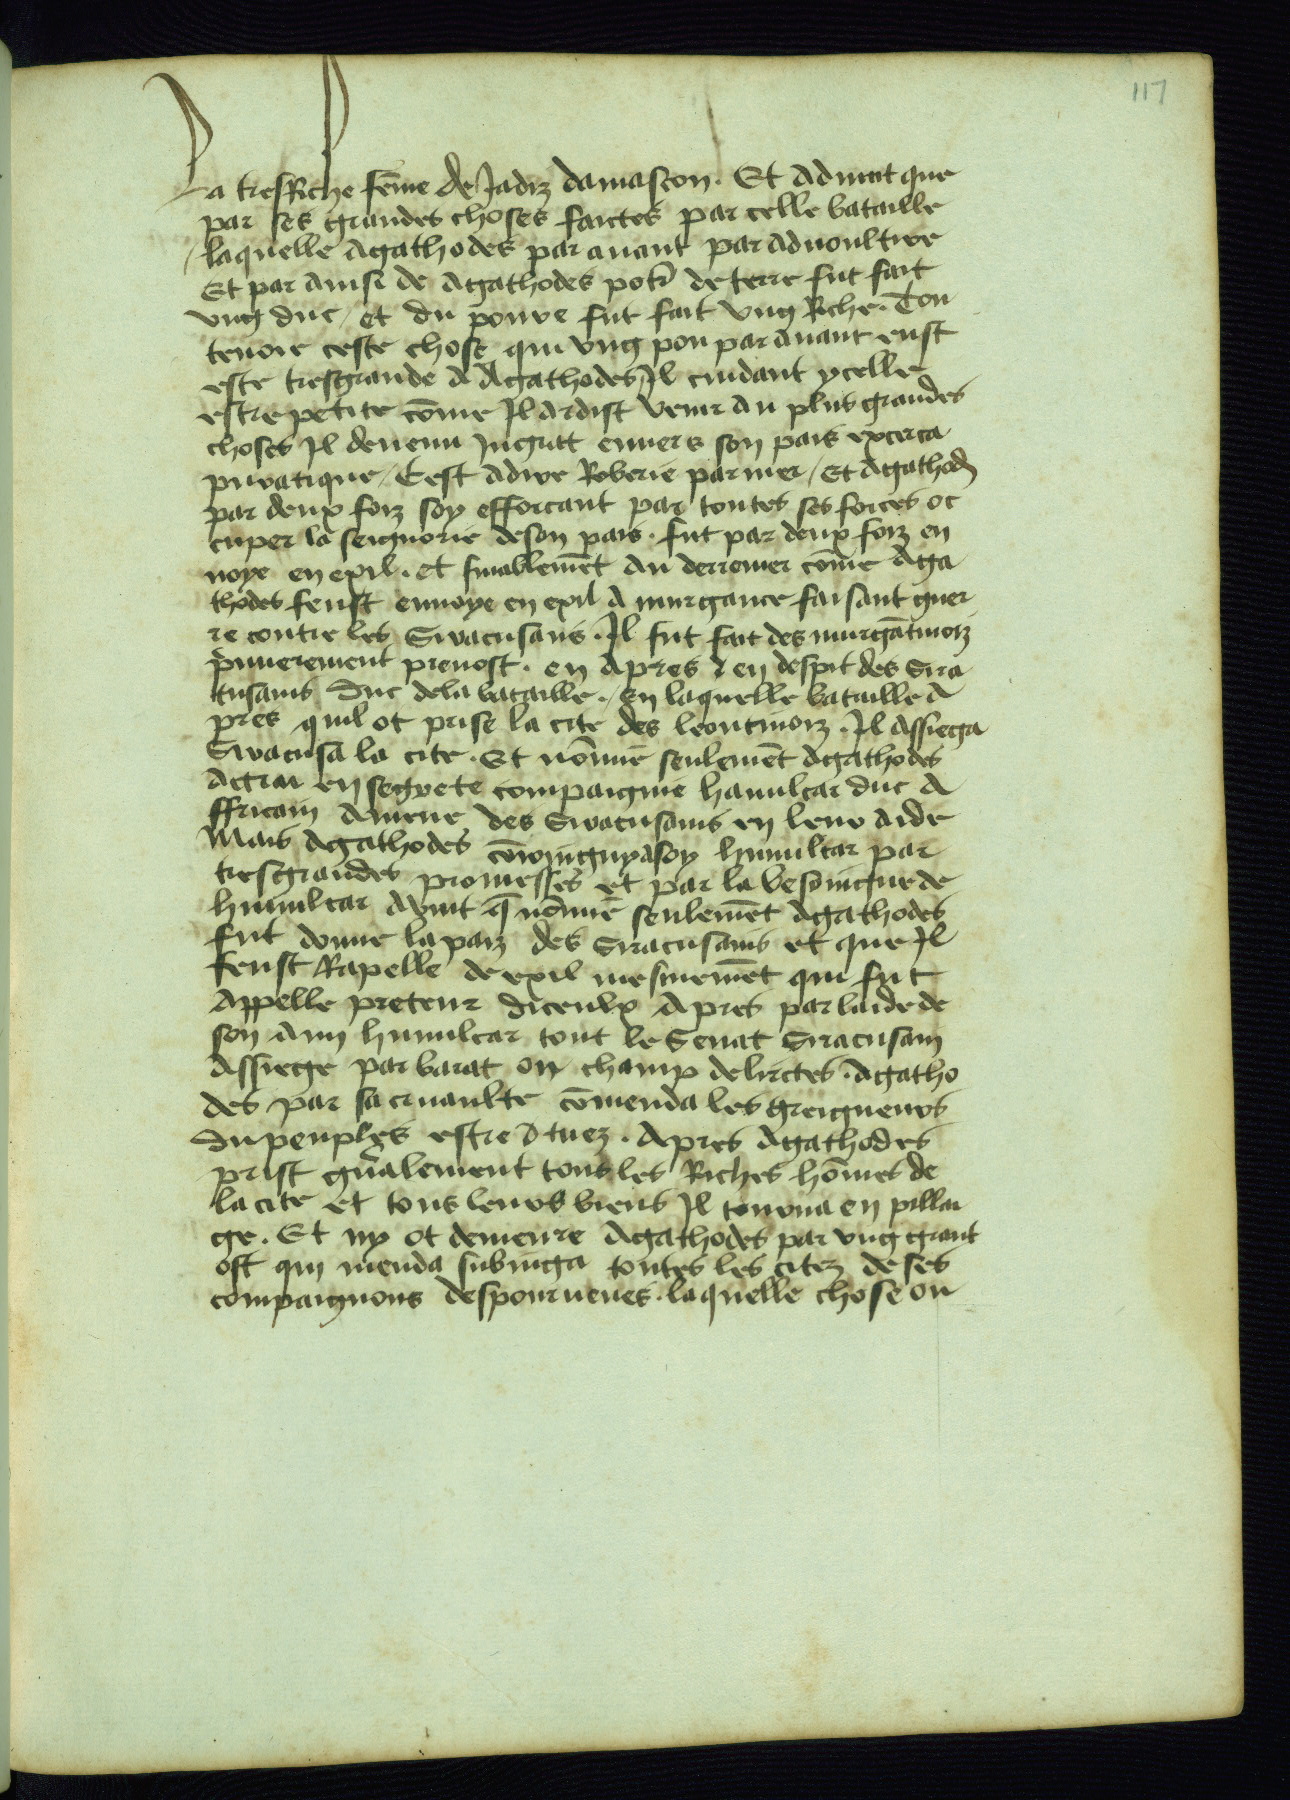 117
La tresriche fēme de Jadiz damascon. Et advint que
par ses grandes choses faictes par celle bataille
laquelle Agathodes par avant par advoultire
Et par ainsi de Agathodes potr̄ de terre fut fait
ung duc / et du pouvre fut fait ung Riche. Tou
tevoie ceste chose qui ung pou par avant eust
este tresgrande a Agathodes Il cuidant ycelle
estre petite cōme Il ardist venir au plus grandes
choses Il devenu Ingratt envers son pais exerca
piratique / Cest adire Roberie par mer / Et Agathod
par deux foiz soy efforcant par toutes ses forces oc
cuper la seignorie de son pais. fut par deux foiz en
voye en exil. et finablemēt au derrenier cōme Aga
thodes feust envoye en exil a murgance faisant guer
re contre les Siracusans. Il fut fait des murgātinoiz
p̄mierement prevost. en apres et en despit des Sira
cusains duc de la bataille. en laquelle bataille a
pres quil ot prise la cite des leontinoiz. Il assiega
Siracusa la cite. Et nōmie seulemēt Agathodes
actrai en segrete compaignie hamilcar duc A
ffricain amene des Siracusains en leur aide
Mais Agathodes cōioinguyasoy himilcar par
tresgrandes promesses et par la besoingne de
himilcar avint q̄ nōmie seulemēt Agathodes
fut donne la paiz des Siracusains et que Il
feust Rapelle de exil mesmemēt qui fut
Appelle preteur diceulx Apres par laide de
son ami himilcar tout le Senat Siracusain
Assiege par barat ou champ de lictes. Agatho
des par sa cruaulte cōmenda les greigneurs
du peuples estre d tuez. Apres Agathodes
prist gn̄alement tous les Riches hōmes de
la cite et tous leurs biens Il tourna en pillai
ge. Et ny ot demeure Agathodes par ung grant
ost qui menda subiuga toutes les citez de ses
compaignons despourveues. laquelle chose ou